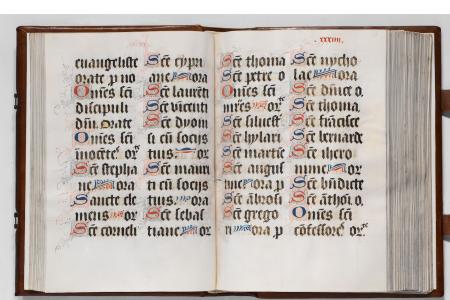 euangeliste
orate p no
Om̄es sc̄i
discipuli
dn̄i. orate
Om̄es sc̄i
īnocētes or
Sc̄e stepha
ne ora
Sancte cle
mens or
Sc̄e corneli
Sc̄e cypri
ane ora
Sc̄e laurēti
Sc̄e vincenti
Sc̄e dyoni
si cū socijs
tuis. or
Sc̄e mauri
ti cū socijs
tuis. ora
Sc̄e sebas
tiane or
xxxiiii.
Sc̄e thoma
Sc̄e petre o
Om̄es sc̄i
mr̄es or
Sc̄e siluest
Sc̄e hylari
Sc̄e martīe
Sc̄e augus
tine ora p
Sc̄e ābrosi
Sc̄e grego
ri ora p
Sc̄e nycho
lae ora
Sc̄e dn̄ice o.
Sc̄e thoma
Sc̄e frācisce
Sc̄e bernarde
Sc̄e ihero
nime or
Sc̄e bn̄dicte
Sc̄e āthoī. o.
Om̄es sc̄i
cōfessores or